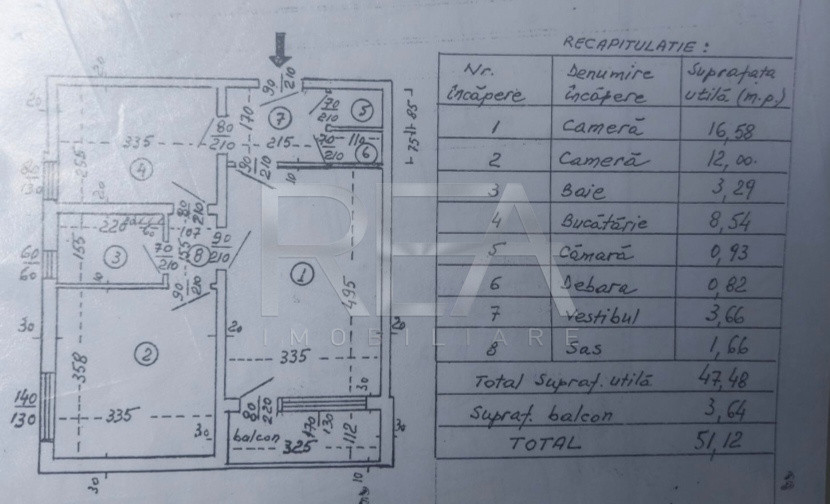 RECAPITULATIE :
Nr. încăpere Denumire încăpere Suprafața utilă (m.p.)
1 Cameră 16,58
2 Cameră 12,00
3 Baie 3,29
4 Bucătărie 8,54
5 Cămară 0,93
6 Debara 0,82
7 Vestibul 3,66
8 Sas 1,66
Total Supraf. utilă 47,48
Supraf. balcon 3,64
TOTAL 51,12
90 210
170
7
70 210
5
85
75
80 210
335
215
110
6
70 210
90 210
10
20
255
4
20
80 210
220
107
60 60
155
3
70 210
155
8
90 210
10
90 210
1
495
REA
IMOBILIARE
30
2
20
20
358
335
335
140 130
30
80 220
30
170 130
balcon
325
112
30
30
10